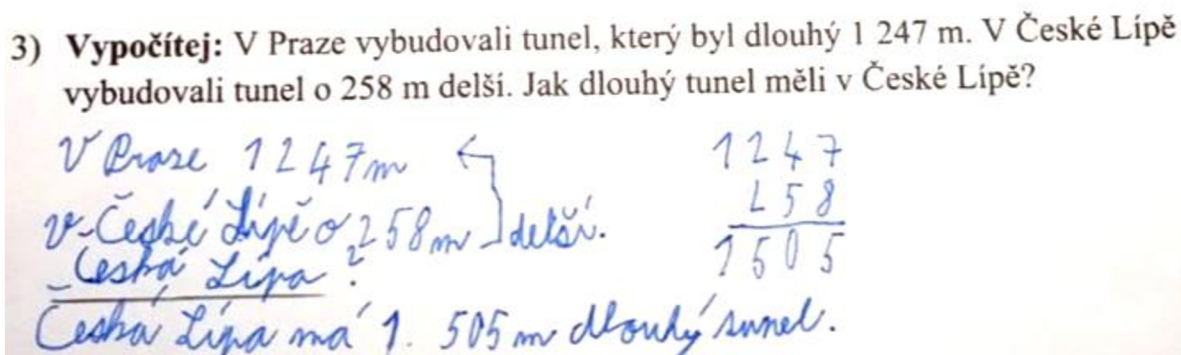 3) Vypočítej: V Praze vybudovali tunel, který byl dlouhý 1 247 m. V České Lípě
vybudovali tunel o 258 m delší. Jak dlouhý tunel měli v České Lípě?
V Praze 1247m
v České Lípě o 258m delší.
Česká Lípa ?
Česká Lípa má 1. 505 m dlouhý tunel.
1247
258
1505